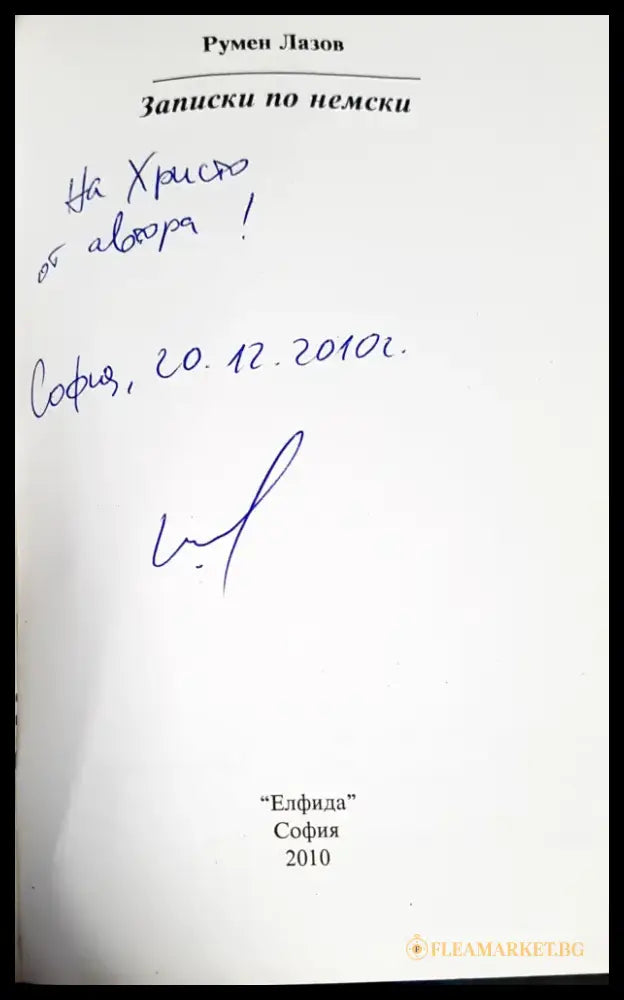 Румен Лазов
Записки по немски
На Христо
от автора !
София, 20.12.2010г.
“Елфида”
София
2010
FLEAMARKET.BG